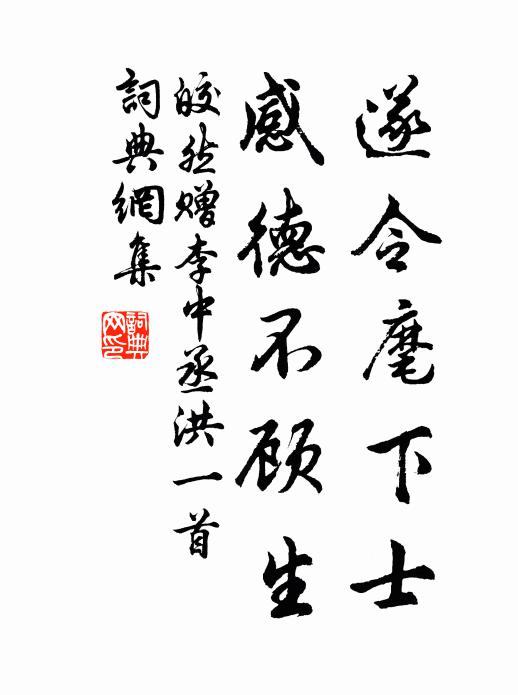 遂令麾下士
感德不顾生
皎然赠李中丞洪一首
詞典網集
詞典网印